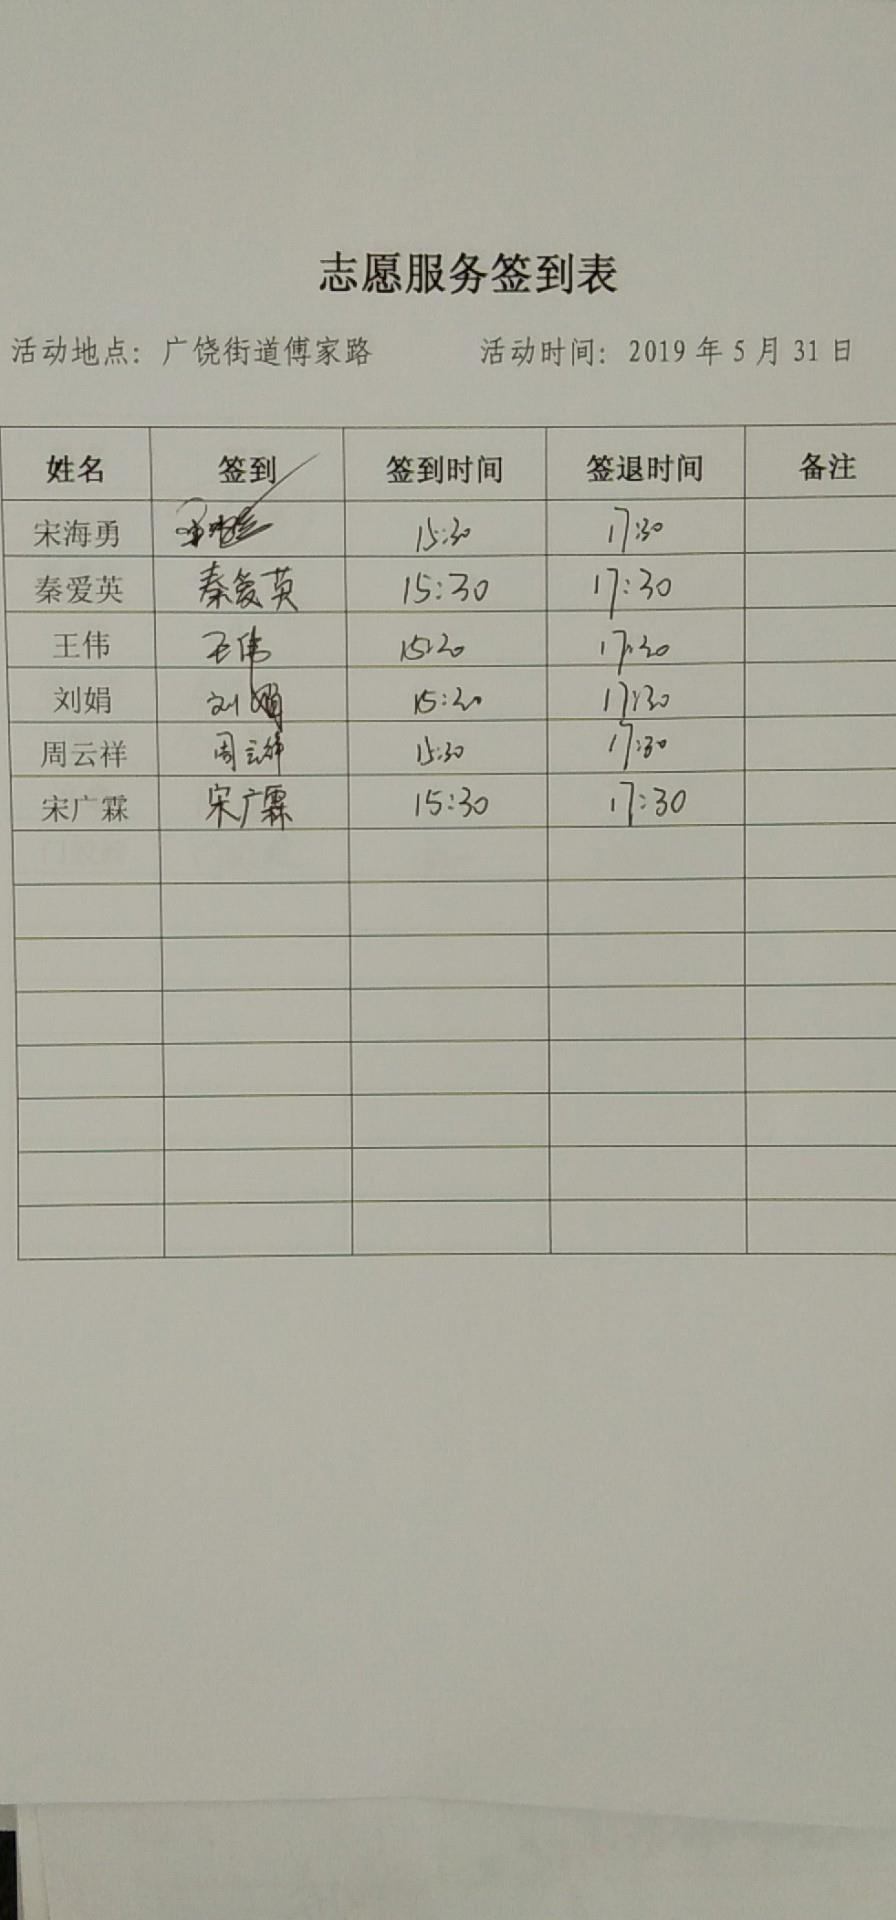 志愿服务签到表
活动地点：广饶街道傅家路 活动时间：2019 年 5 月 31 日
姓名 签到 签到时间 签退时间 备注
宋海勇 15:30 17:30
秦爱英 秦爱英 15:30 17:30
王伟 王伟 15:30 17:30
刘娟 刘娟 15:30 17:30
周云祥 周云祥 15:30 17:30
宋广霖 宋广霖 15:30 17:30